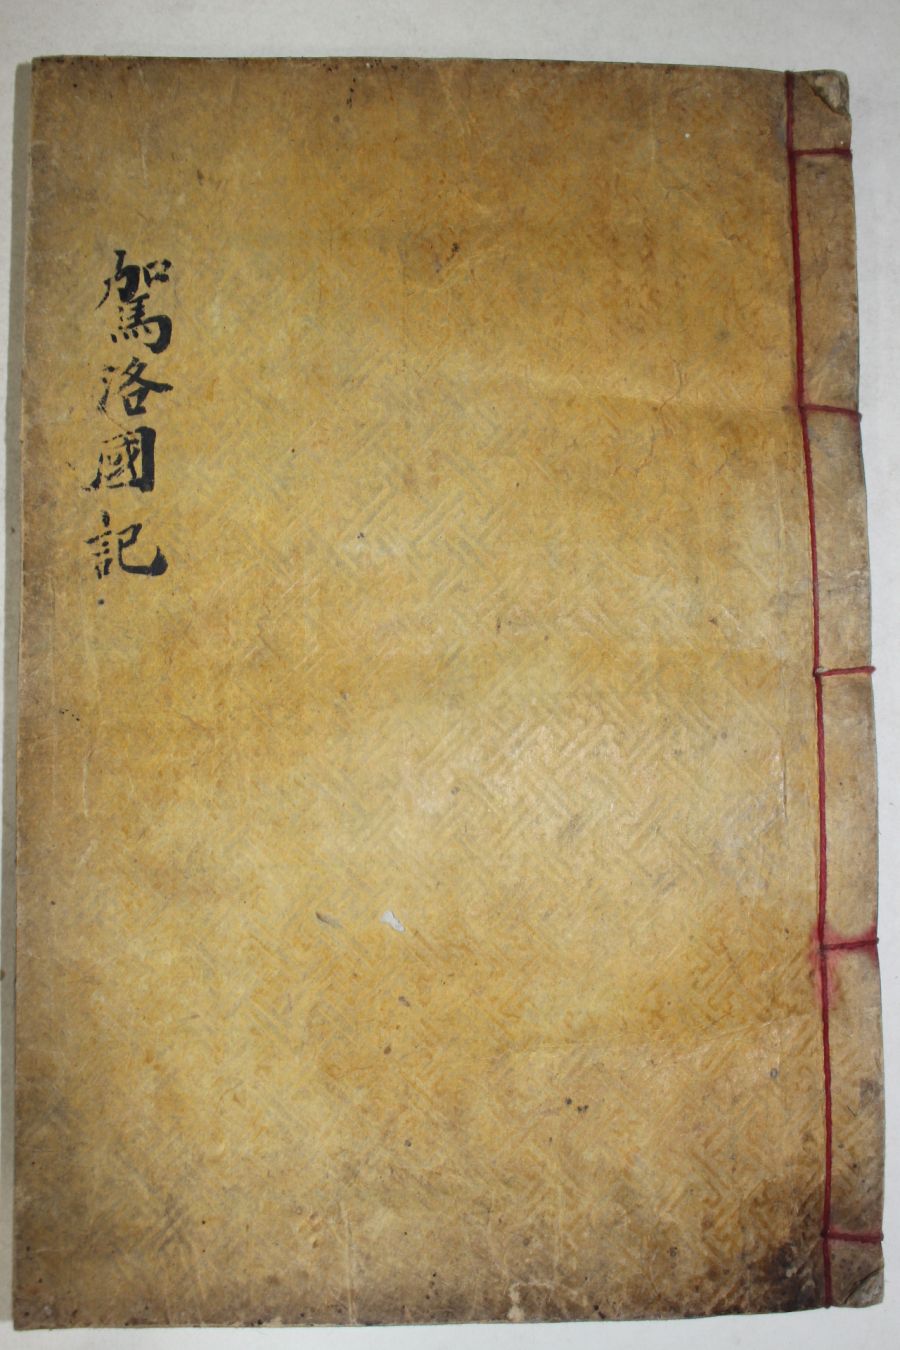 駕洛國記